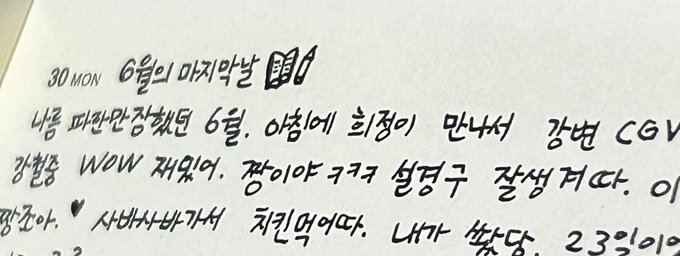 30 MON 6월의 마지막날
나름 파란만장했던 6월. 아침에 희정이 만나서 강변 CGV
강철중 WOW 재밌어. 짱이야 ㅋㅋㅋ 설경구 잘생겨따. 이
짱조아. ♥ 사바사바가서 치킨먹어따. 내가 쐈당. 23일이었